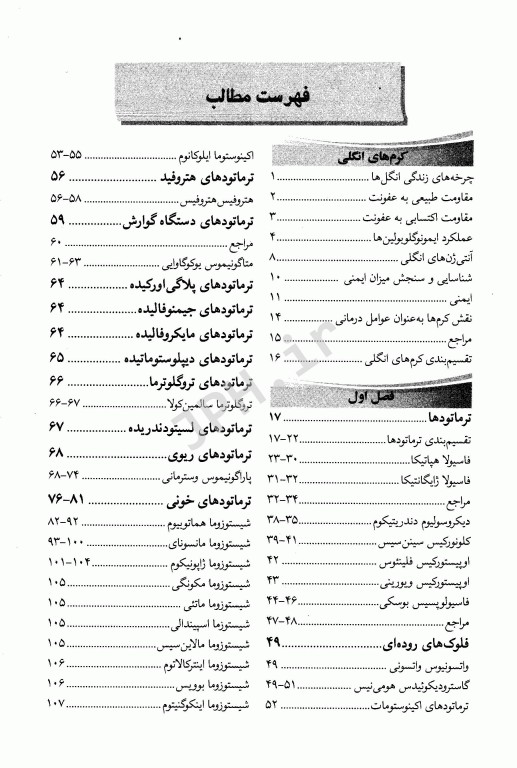 فهرست مطالب
کرم‌های انگلی
چرخه‌های زندگی انگل‌ها ........ ۱
مقاومت طبیعی به عفونت ........ ۲
مقاومت اکتسابی به عفونت ........ ۳
عملکرد ایمونوگلوبولین‌ها ........ ۴
آنتی‌ژن‌های انگلی ........ ۸
شناسایی و سنجش میزان ایمنی ........ ۱۰
ایمنی ........ ۱۱
نقش کرم‌ها به‌عنوان عوامل درمانی ........ ۱۴
مراجع ........ ۱۵
تقسیم‌بندی کرم‌های انگلی ........ ۱۶
فصل اول
ترماتودها ........ ۱۷
تقسیم‌بندی ترماتودها ........ ۲۲-۱۷
فاسیولا هپاتیکا ........ ۳۰-۲۳
فاسیولا ژایگانتیکا ........ ۳۲-۳۱
مراجع ........ ۳۴-۳۲
دیکروسلیوم دندریتیکوم ........ ۳۸-۳۵
کلونورکیس سینن‌سیس ........ ۴۱-۳۹
اوپیستورکیس فلینئوس ........ ۴۲
اوپیستورکیس ویورینی ........ ۴۳
فاسیولوپسیس بوسکی ........ ۴۶-۴۴
مراجع ........ ۴۸-۴۷
فلوک‌های روده‌ای ........ ۴۹
واتسونیوس واتسونی ........ ۴۹
گاسترودیکوئیدس هومی‌نیس ........ ۵۱-۴۹
ترماتودهای اکینوستومات ........ ۵۲
اکینوستوما ایلوکانوم ........ ۵۵-۵۳
ترماتودهای هتروفید ........ ۵۶
هتروفیس‌هتروفیس ........ ۵۸-۵۶
ترماتودهای دستگاه گوارش ........ ۵۹
مراجع ........ ۶۰
متاگونیموس یوکوگاوایی ........ ۶۳-۶۱
ترماتودهای پلاگی‌اورکیده ........ ۶۴
ترماتودهای جیمنوفالیده ........ ۶۴
ترماتودهای مایکروفالیده ........ ۶۴
ترماتودهای دیپلوستوماتیده ........ ۶۵
ترماتودهای تروگلوترما ........ ۶۶
تروگلوترما سالمین‌کولا ........ ۶۷-۶۶
ترماتودهای لسیتودندریده ........ ۶۷
ترماتودهای ریوی ........ ۶۸
پاراگونیموس وسترمانی ........ ۷۴-۶۸
ترماتودهای خونی ........ ۸۱-۷۶
شیستوزوما هماتوبیوم ........ ۹۲-۸۲
شیستوزوما مانسونای ........ ۱۰۰-۹۳
شیستوزوما ژاپونیکوم ........ ۱۰۴-۱۰۱
شیستوزوما مکونگی ........ ۱۰۵
شیستوزوما ماتئی ........ ۱۰۵
شیستوزما اسپیندالی ........ ۱۰۵
شیستوزوما مالاین‌سیس ........ ۱۰۵
شیستوزوما اینترکالاتوم ........ ۱۰۶
شیستوزوما بوویس ........ ۱۰۶
شیستوزوما اینکوگنیتوم ........ ۱۰۷